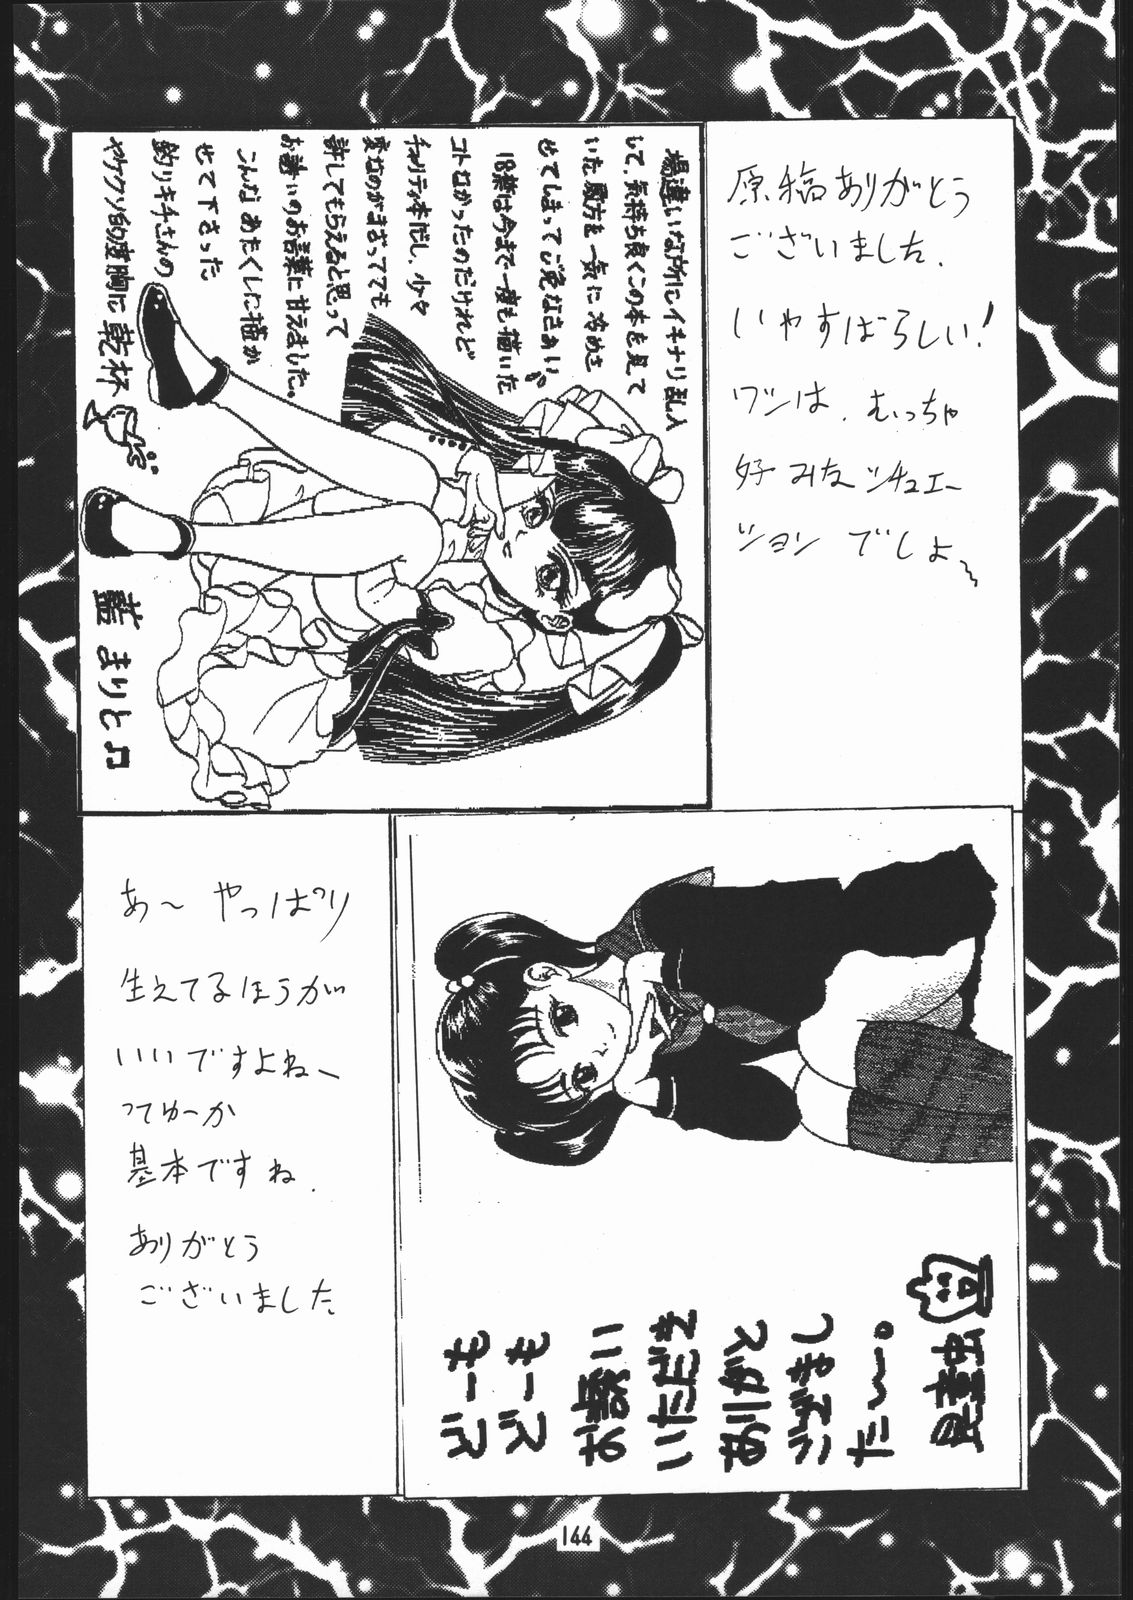 場違いな所にイキナリ乱入
して、気持ち良くこの本を見て
いた殿方を一気に冷めさ
せてしまってご免なさぁい。
18禁は今まで一度も描いた
コトなかったのだけれど
チャリティ本だし、少々
変なのがまざってても
許してもらえると思って
お誘いのお言葉に甘えました。
こんなあたくしに描か
せて下さった
釣りキチさんの
ヤケクソ的度胸に乾杯
藍まりと♫
原稿ありがとう
ございました.
いやすばらしい!
ワシは、むっちゃ
好みなシチュエー
ションでしょ〜
あ〜やっぱり
生えてるほうが
いいですよねー
ってゆーか
基本ですね.
ありがとう
ございました.
どーも
どーも
お誘い
いただき
ありがと
ござまし
た〜。
見童虫
144